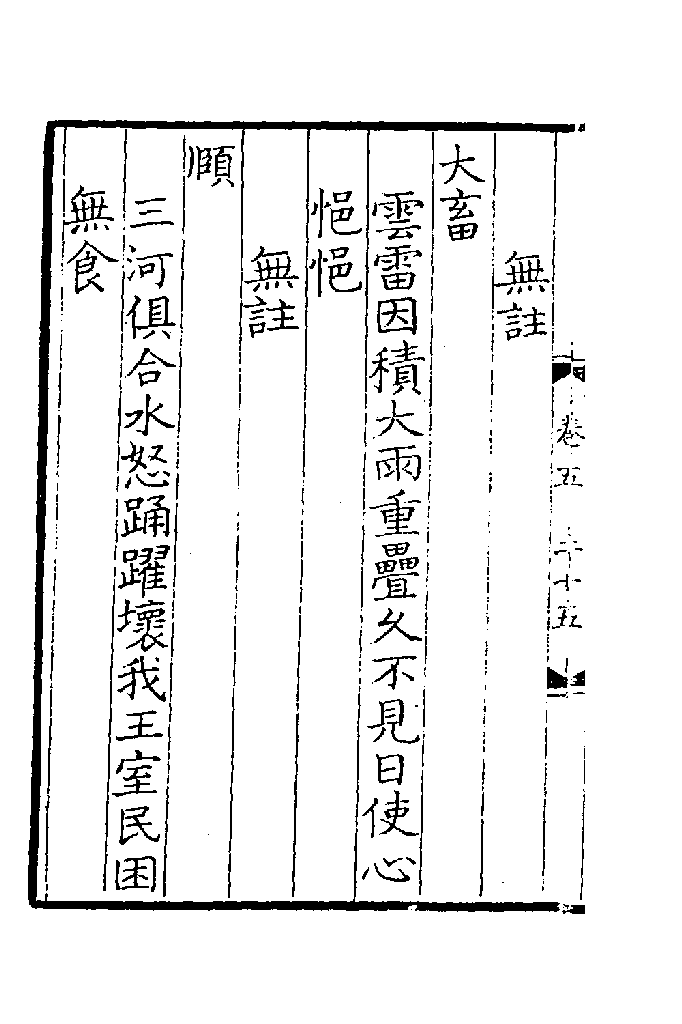 卷五
無註
大畜
雲雷因積大雨重疊久不見日使心
悒悒
無註
頤
三河俱合水怒踊躍壞我王室民困
無食